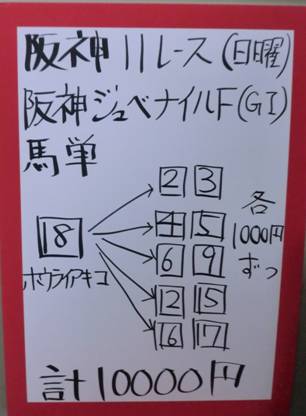 阪神11レース(日曜)
阪神ジュベナイルF(GI)
馬単
18
ホウライアキコ
2 3
4 5
6 9
12 15
16 17
各
1000円
ずつ
計10000円